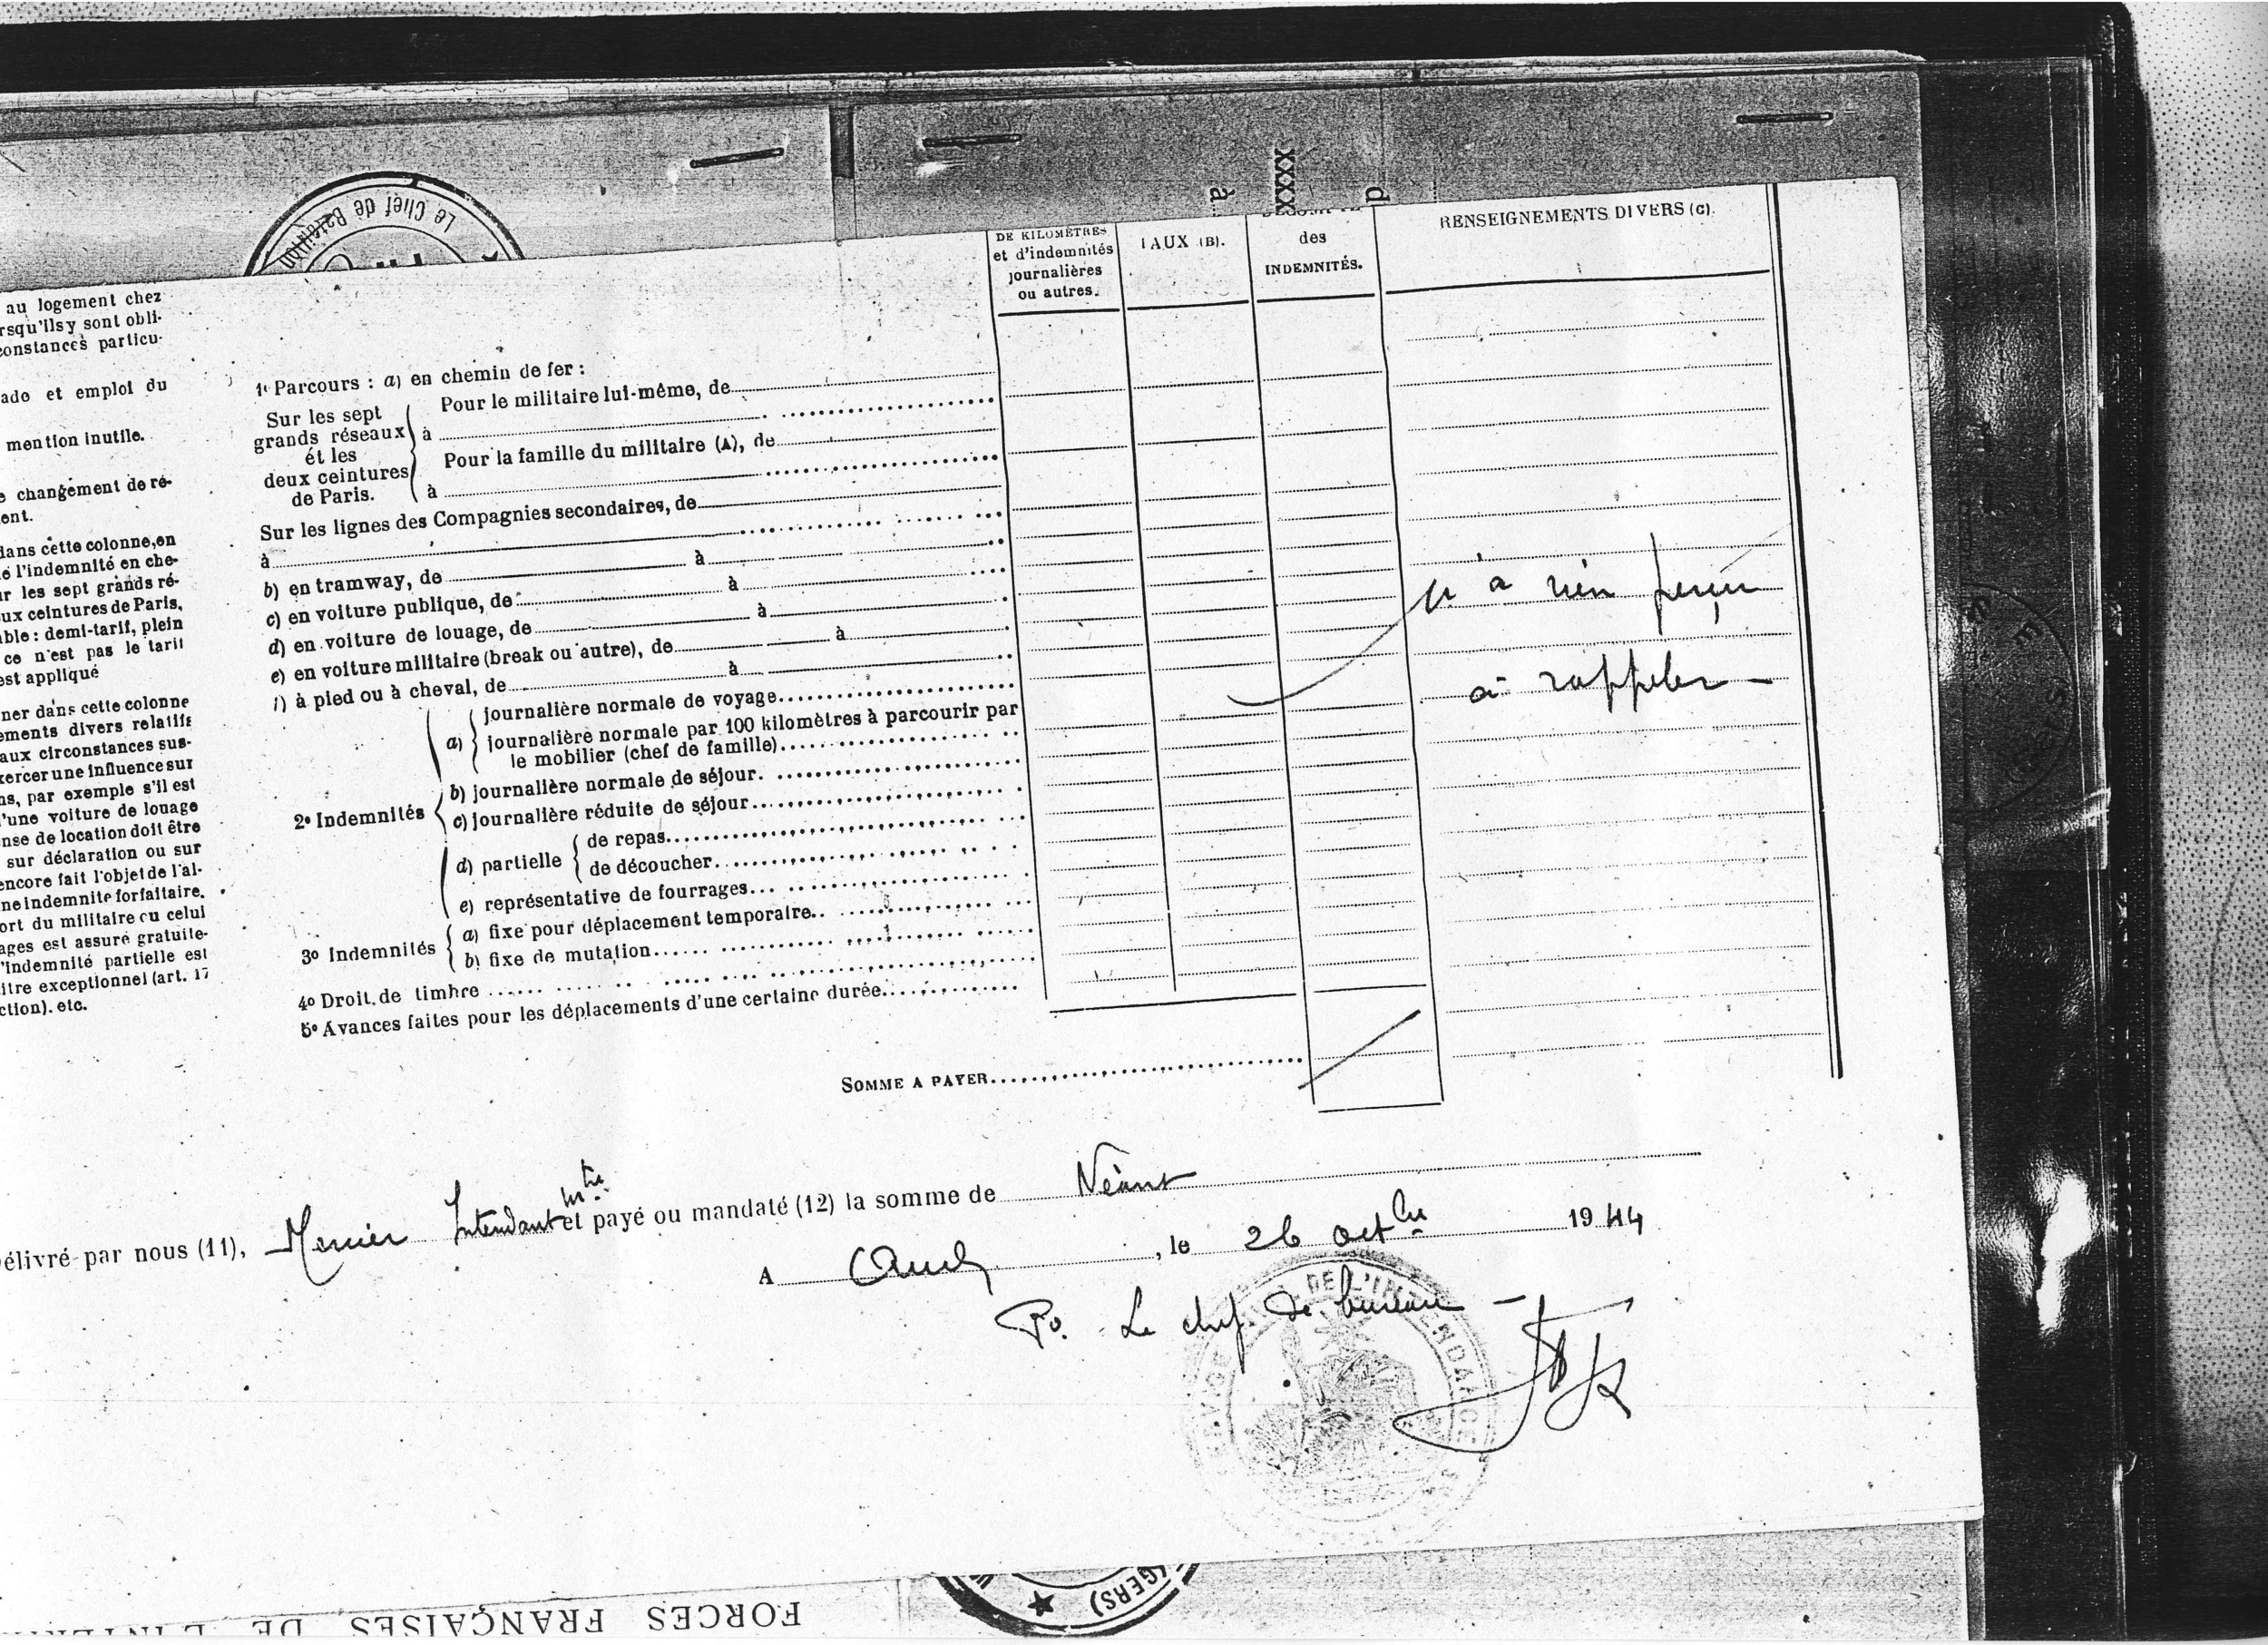 Le Chef de Bataillon
à
XXXX
d
au logement chez
rsqu'ils y sont obli-
constances particu-
ade et emploi du
mention inutile.
e changement de ré-
ent.
dans cette colonne, en
é l'indemnité en che-
ur les sept grands ré-
ux ceintures de Paris,
able : demi-tarif, plein
ce n'est pas le tarif
est appliqué
ner dans cette colonne
ements divers relatifs
aux circonstances sus-
xercer une influence sur
ns, par exemple s'il est
d'une voiture de louage
nse de location doit être
sur déclaration ou sur
encore fait l'objet de l'al-
ne indemnité forfaitaire.
ort du militaire ou celui
ages est assuré gratuite-
l'indemnité partielle est
itre exceptionnel (art. 17
ction). etc.
DE KILOMÈTRES
et d'indemnités
journalières
ou autres.
TAUX (B).
DÉCOMPTE
des
INDEMNITÉS.
RENSEIGNEMENTS DIVERS (C).
1° Parcours : a) en chemin de fer :
Sur les sept
grands réseaux
et les
deux ceintures
de Paris.
Pour le militaire lui-même, de
à
Pour la famille du militaire (A), de
à
Sur les lignes des Compagnies secondaires, de
à
b) en tramway, de à
c) en voiture publique, de à
d) en voiture de louage, de à
e) en voiture militaire (break ou autre), de à
f) à pied ou à cheval, de à
2° Indemnités
a) journalière normale de voyage
journalière normale par 100 kilomètres à parcourir par
le mobilier (chef de famille)
b) journalière normale de séjour.
c) journalière réduite de séjour
d) partielle
de repas
de découcher
e) représentative de fourrages
3° Indemnités
a) fixe pour déplacement temporaire
b) fixe de mutation
4° Droit de timbre
5° Avances faites pour les déplacements d'une certaine durée
n'a rien perçu
à rappeler -
SOMME A PAYER
délivré par nous (11), Mercier Intendant Mre et payé ou mandaté (12) la somme de Néant
A Auch, le 26 octbre 1944
Po. Le chef de bureau -
DE L'INTENDANCE
(GERS)
FORCES FRANÇAISES DE L'INTERI